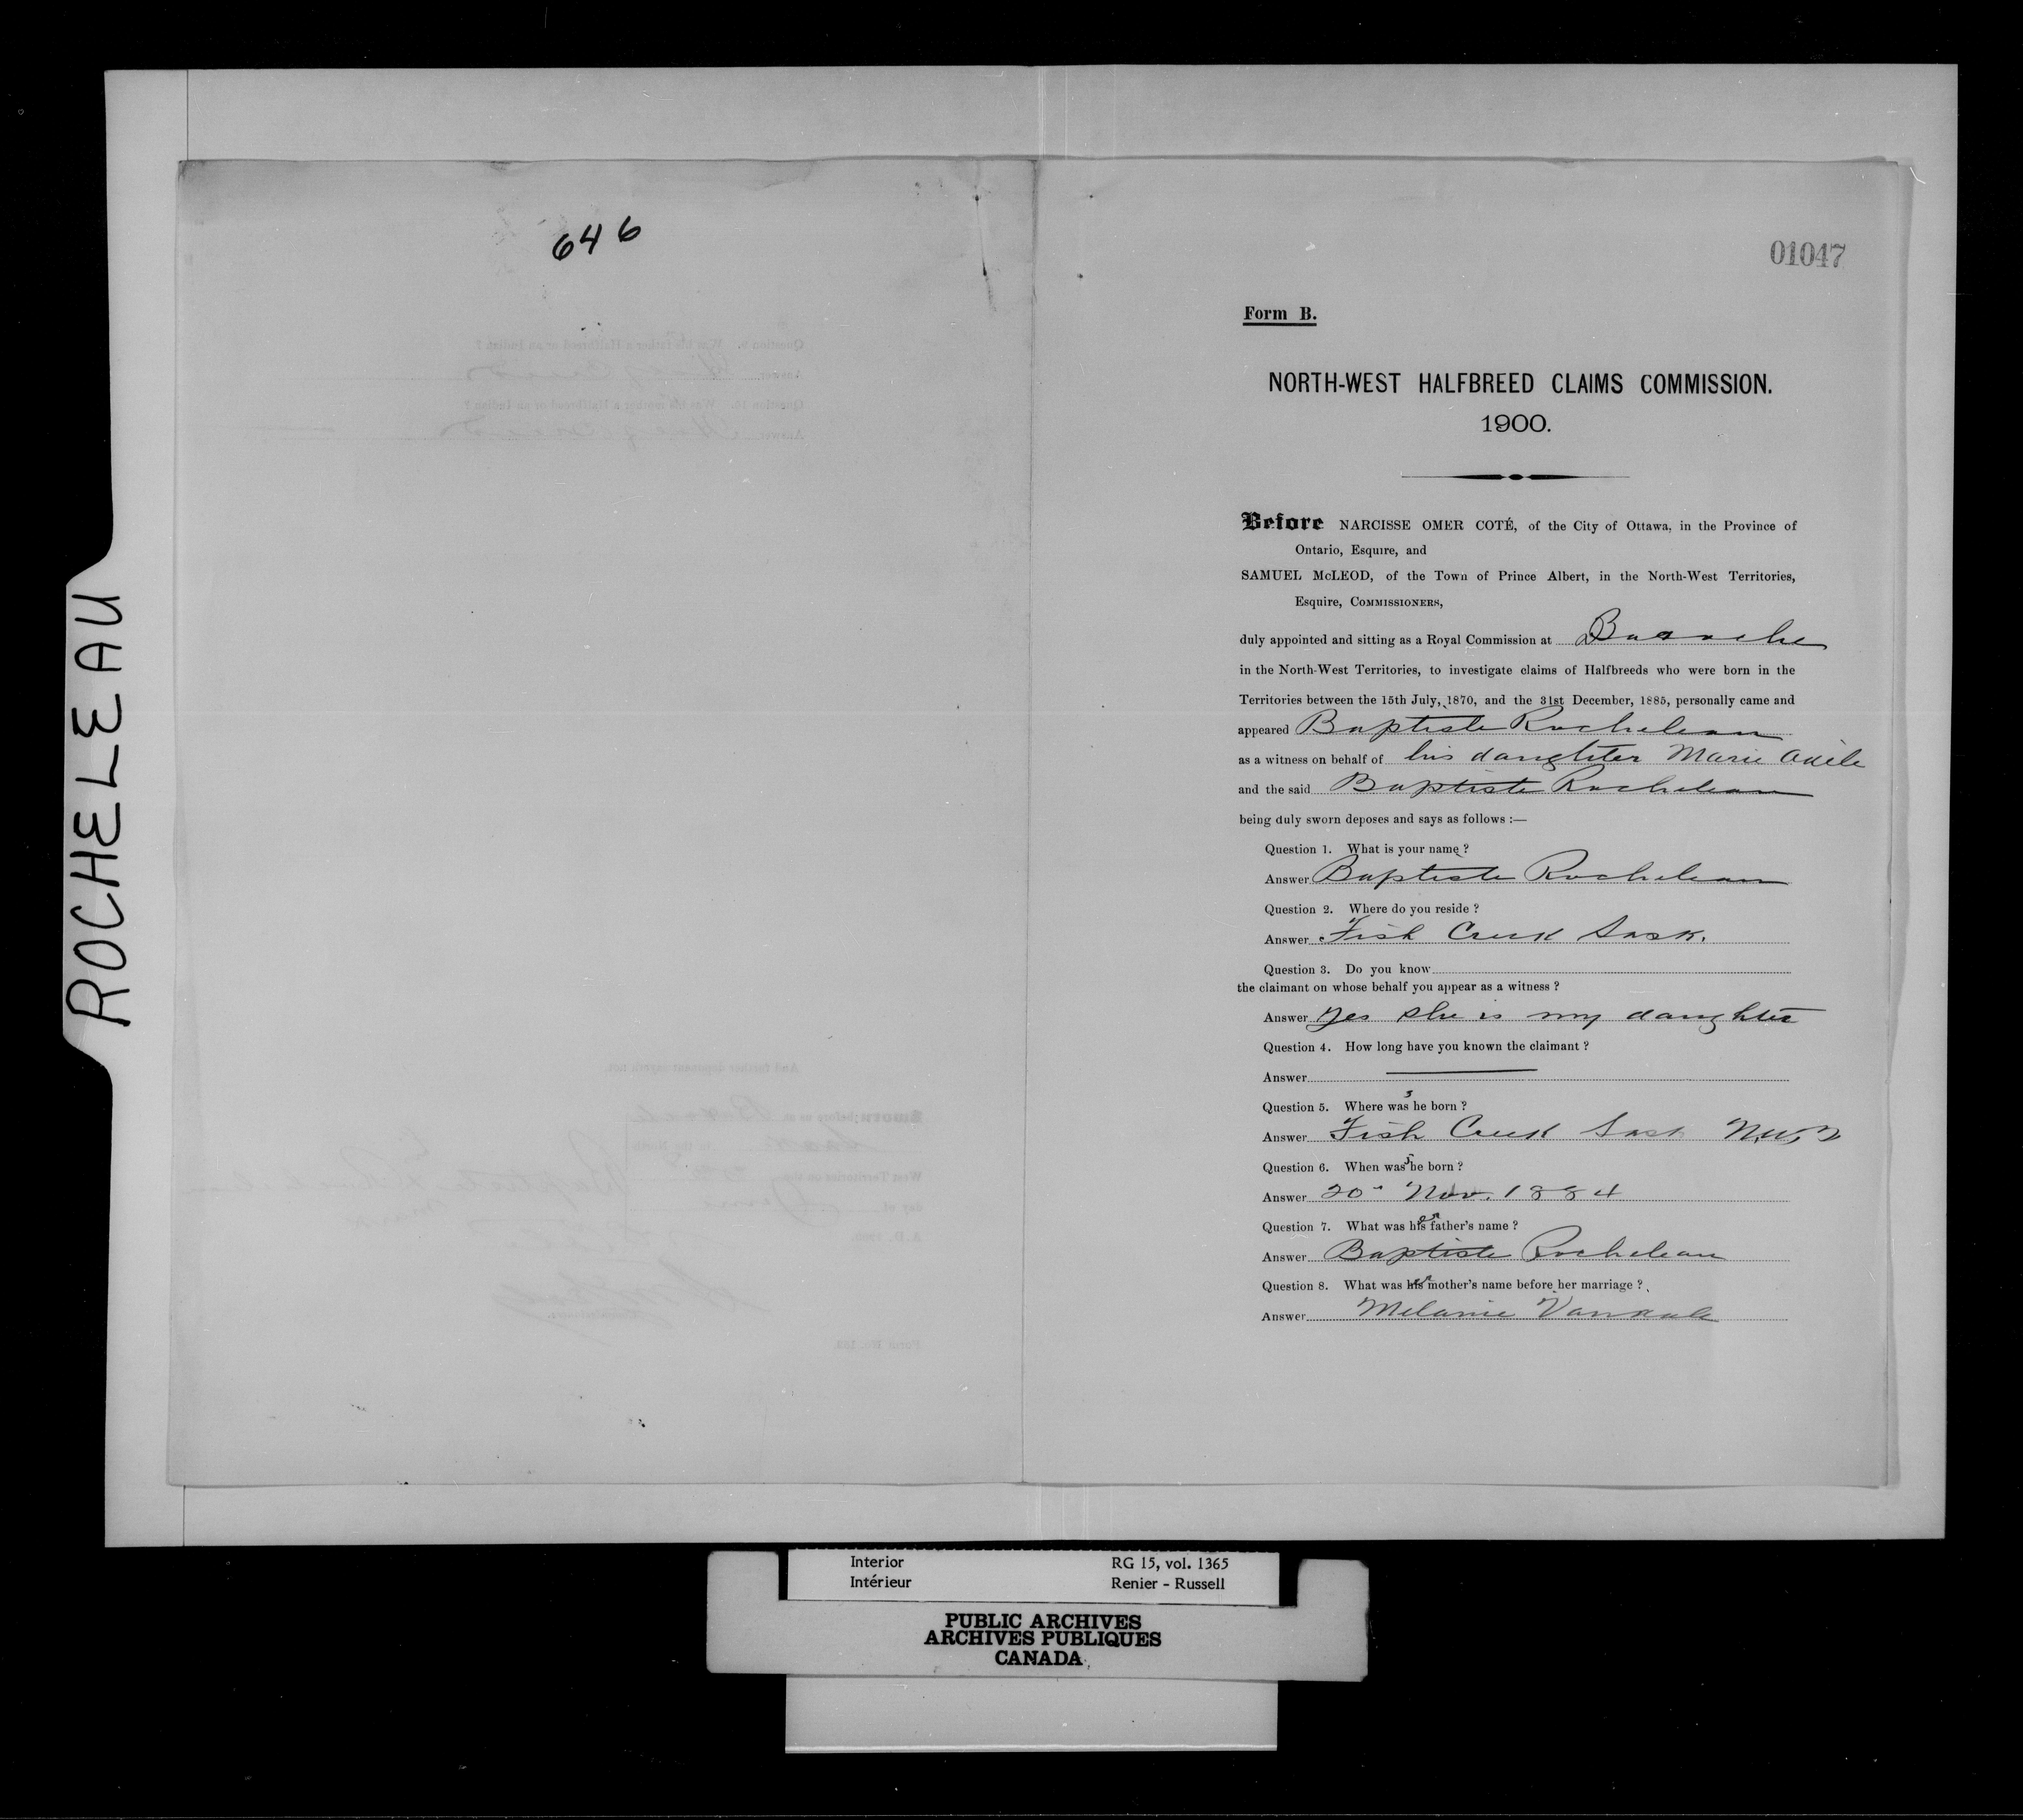 ROCHELEAU
646
01047
Form B.
NORTH-WEST HALFBREED CLAIMS COMMISSION.
1900.
Before NARCISSE OMER COTÉ, of the City of Ottawa, in the Province of
Ontario, Esquire, and
SAMUEL McLEOD, of the Town of Prince Albert, in the North-West Territories,
Esquire, COMMISSIONERS,
duly appointed and sitting as a Royal Commission at Batoche
in the North-West Territories, to investigate claims of Halfbreeds who were born in the
Territories between the 15th July, 1870, and the 31st December, 1885, personally came and
appeared Baptiste Rocheleau
as a witness on behalf of his daughter Marie Adèle
and the said Baptiste Rocheleau
being duly sworn deposes and says as follows :—
Question 1. What is your name ?
Answer Baptiste Rocheleau
Question 2. Where do you reside ?
Answer Fish Creek Sask.
Question 3. Do you know
the claimant on whose behalf you appear as a witness ?
Answer Yes she is my daughter
Question 4. How long have you known the claimant ?
Answer
Question 5. Where was she born ?
Answer Fish Creek Sask N.W.T
Question 6. When was she born ?
Answer 20" Nov. 1884
Question 7. What was her father's name ?
Answer Baptiste Rocheleau
Question 8. What was her mother's name before her marriage ?
Answer Melanie Vandale
Interior RG 15, vol. 1365
Intérieur Renier - Russell
PUBLIC ARCHIVES
ARCHIVES PUBLIQUES
CANADA